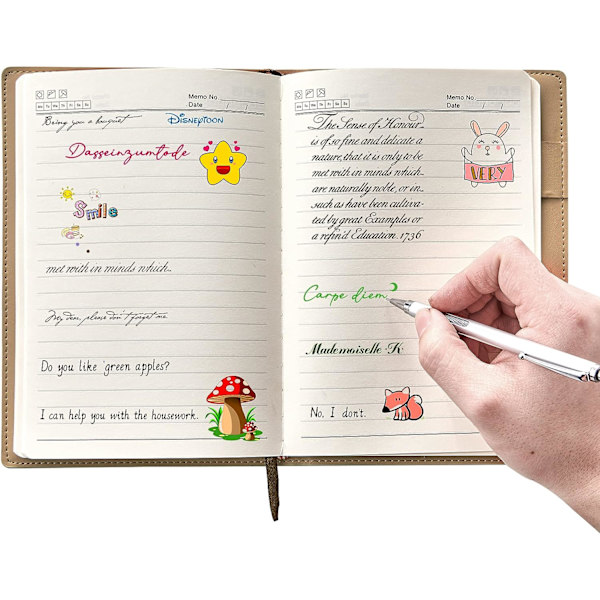 Memo No.
Mo Tu We Th Fr Sa Su
Date / /
Being you a bouquet
DISNEYTOON
Dasseinzumtode
Smile
met with in minds which..
My dear, please don't forget me
Do you like 'green apples?
I can help you with the housework.
Memo No.
Mo Tu We Th Fr Sa Su
Date / /
The Sense of Honour
is of so fine and delicate a
nature, that it is only to be
met with in minds which
are naturally noble, or in
such as have been cultiva-
ted by great Examples or
a refin'd Education. 1736
VERY
Carpe diem
Mademoiselle K
No, I don't.